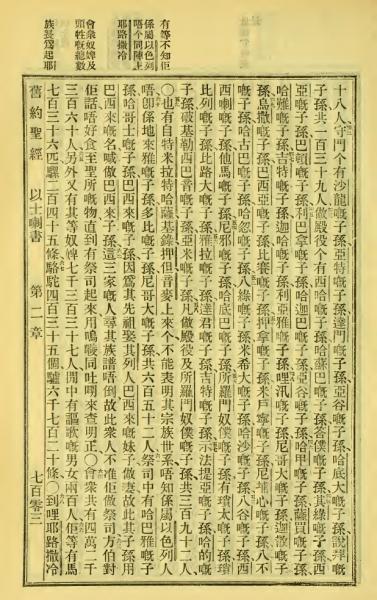 有等不知佢
係屬以色列
唔个同陣上
耶路撒冷
會衆奴婢及
頭牲嘅總數
族長爲起耶
十八人守門个有沙龍嘅子孫亞特嘅子孫達們嘅子孫亞谷嘅子孫哈底大嘅子孫說拜嘅
子孫共一百三十九人做殿役个有西哈嘅子孫哈蘇巴嘅子孫答俄嘅子孫其綠嘅子孫西
亞嘅子孫巴頓嘅子孫利巴拿嘅子孫哈迦巴嘅子孫亞谷嘅子孫哈甲嘅子孫薩買嘅子孫
哈難嘅子孫吉特嘅子孫迦哈嘅子孫利亞雅嘅子孫哩汛嘅子孫尼哥大嘅子孫迦散嘅子
孫烏撒嘅子孫巴西亞嘅子孫比賽嘅子孫押拿嘅子孫米烏寧嘅子孫尼普心嘅子孫八不
嘅子孫哈古巴嘅子孫哈忽嘅子孫八綠嘅子孫米希大嘅子孫哈沙嘅子孫八谷嘅子孫西
西喇嘅子孫他馬嘅子孫尼邪嘅子孫哈底巴嘅子孫所羅門奴僕嘅子孫有瑣太嘅子孫瑣
比列嘅子孫比路大嘅子孫雅拉嘅子孫達君嘅子孫吉特嘅子孫示法提亞嘅子孫哈的嘅
子孫破基勒西巴音嘅子孫亞米嘅子孫凡做殿役及所羅門奴僕嘅子孫共三百九十二人
〇也有自特米拉特哈薩基錄押但音麥上來个不能表明其宗族世系唔知係屬以色列人
唔卽係地來雅嘅子孫多比嘅子孫尼哥大嘅子孫共六百五十二人祭司中有哈巴雅嘅子
孫哈哥士嘅子孫巴西來嘅子孫因爲其先祖娶其列人巴西來嘅妹子做妻故此其子孫用
巴西來嘅名喊做巴西來子孫這三家嘅人尋其族譜唔倒故此衆人不准佢做祭司方伯對
佢話唔好食至聖所嘅物直到有祭司起來用同吐來查明正〇會衆共有四萬二千
三百六十人另外又有其等奴婢七千三百三十七人閒中有謳歌嘅男女兩百人佢等有馬
七百三十六匹騾二百四十五條駱駝四百三十五個驢六千七百二十條〇到哩耶路撒冷
舊約聖經 以士喇書 第二章 七百零三